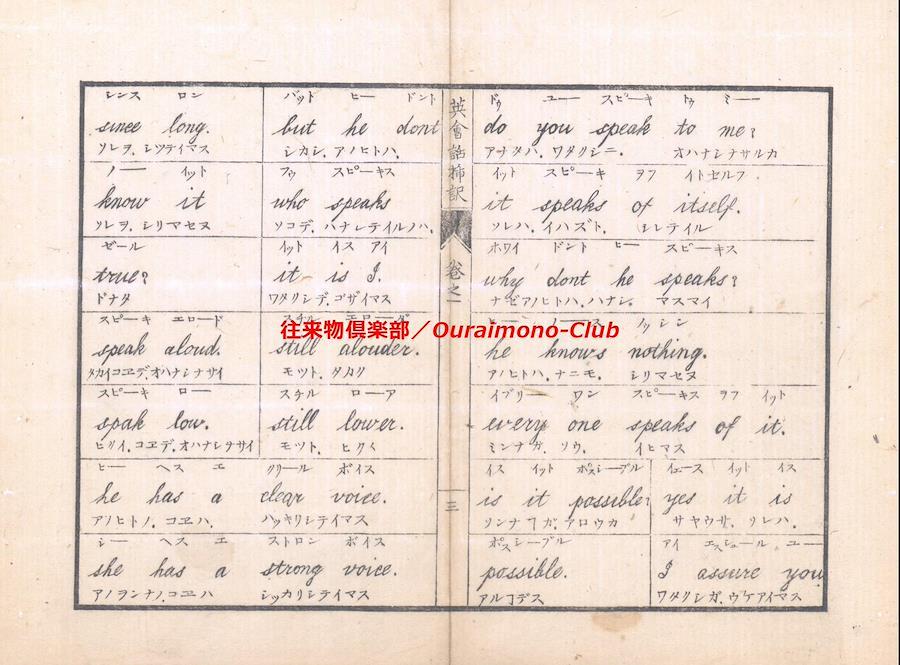 シンスロン バットヒードント
since long. but he dont
ソレヲ.シツテイマス シカシ.アノヒトハ.
ノーイット フウスピーキス
know it who speaks
ソレヲ.シリマセヌ ソコデ.ハナシテイルノハ.
ゼール イットイスアイ
true? it is I.
ドナタ ワタクシデ.ゴザイマス
スピーキエロード スチルエローダ
speak aloud. still alouder.
タカイコヱデ.オハナシナサイ モツト.タカク
スピーキロー スチルローア
spak low. still lower.
ヒクイ.コヱデ.オハナシナサイ モツト.ヒクく
ヒーヘスエ クリールボイス
he has a clear voice.
アノヒトノ.コヱハ. ハッキリシテイマス
シーヘスエ ストロンボイス
she has a strong voice.
アノヲンナノ.コヱハ シッカリシテイマス
英會話挿訳
卷之一
三
ドゥユースピーキトゥミー
do you speak to me?
アナタハ.ワタクシニー.オハナシナサルカ
イットスピーキヲフイトセルフ
it speaks of itself.
ソレハ.イハズト.シレテイル
ホワイドントヒースピーキス
why dont he speaks?
ナゼアノヒトハ.ハナシ.マスマイ
ヒーノースノッシン
he knows nothing.
アノヒトハ.ナニモ.シリマセヌ
イブリーワンスピーキスヲフイット
every one speaks of it.
ミンナガ.ソウ.イヒマス
イスイットポスシーブル イェースイットイス
is it possible? yes it is
ソンナヿガ.アロウカ サヤウサ.ソレハ.
ポスシーブル アイエスシュールユー
possible. I assure you
アルヿデス ワタクシガ.ウケアイマス
往来物倶楽部／Ouraimono-Club